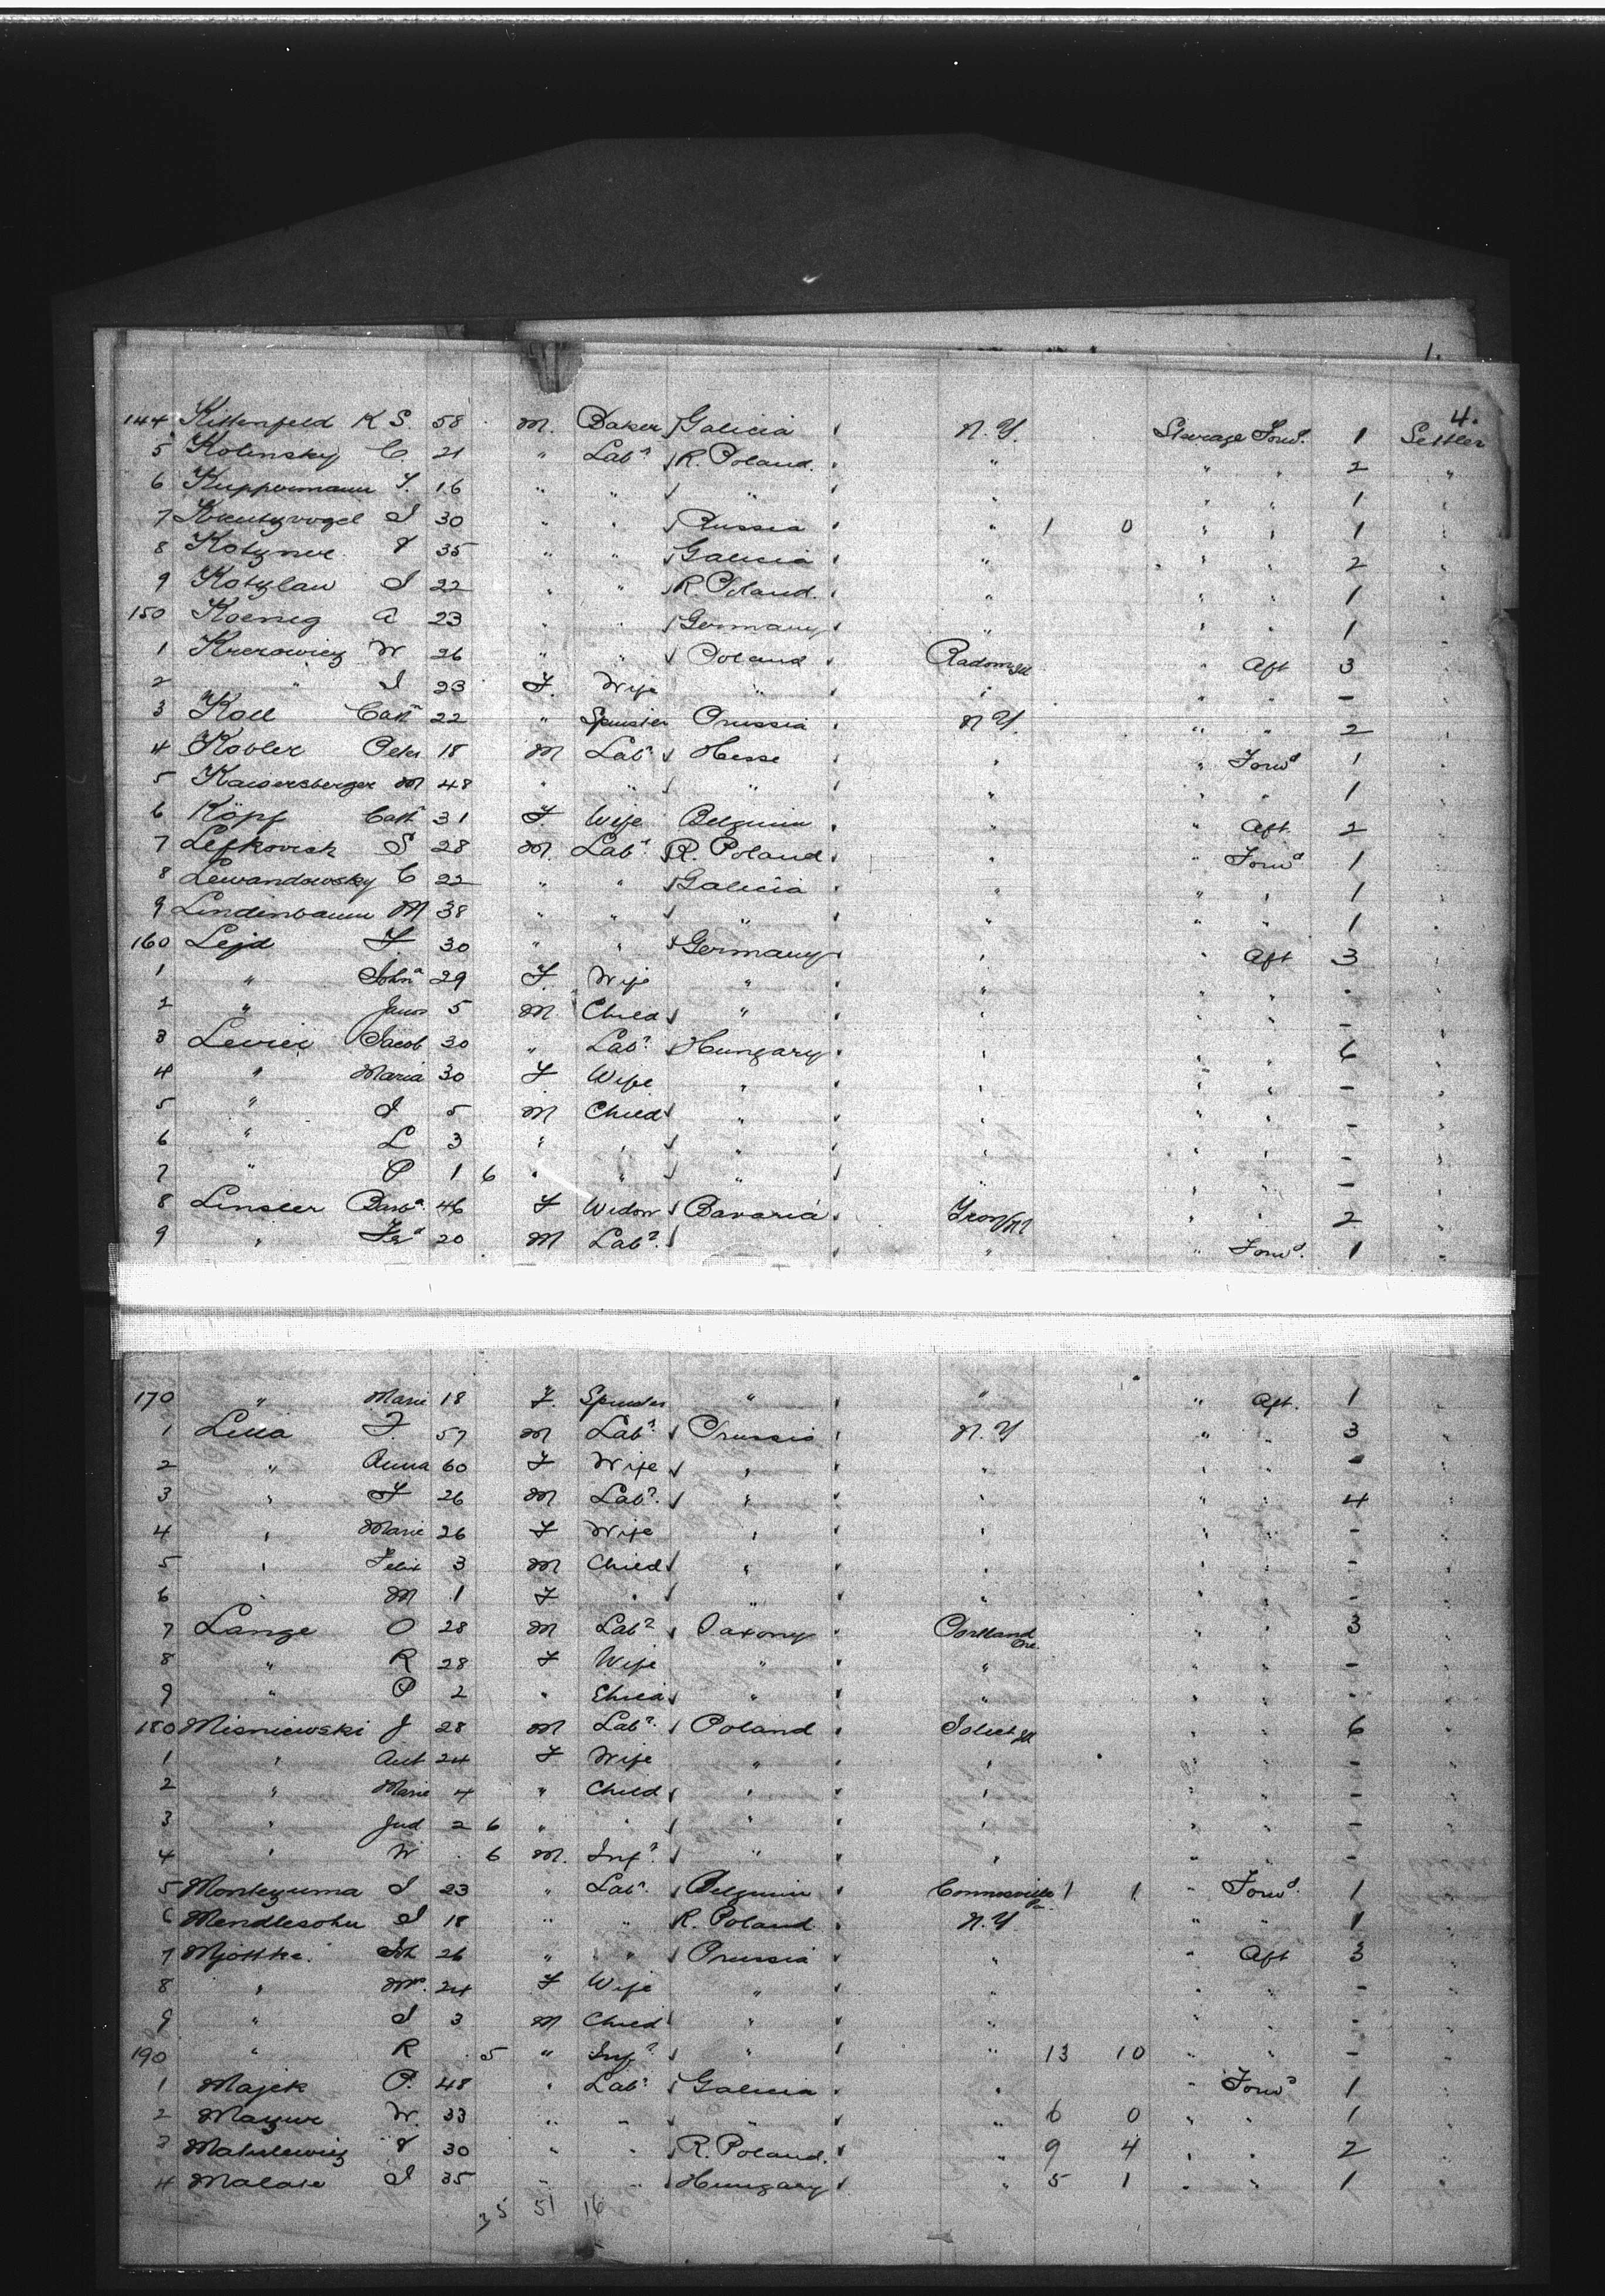 1.
4.
144 Kittenfeld K S. 58 M. Baker Galicia N.Y. Steerage Forwd. 1 Settler
5 Kolinsky C. 21 " Labr R. Poland. " " " 2 "
6 Kuppermann S. 16 " " " " " " 1 "
7 S 30 " " Russia " 1 0 " " 1 "
8 35 " " Galicia " " " 2 "
9 Kotzlau S 22 " " R. Poland. " " " 1 "
150 Koenig A 23 " " Germany " " " 1 "
1 W 26 " " Poland Radom Ill " Aft 3 "
2 " S 23 F. Wife " " " " - "
3 Koll Cath 22 " Spinster Prussia N.Y. " " 2 "
4 Kobler Peter 18 M Labr Hesse " " Forwd 1 "
5 Kaisersberger M 48 " " " " " " 1 "
6 Köpf Cath 31 F. Wife Belgium " " Aft. 2 "
7 Lefkovich S 28 M. Labr R. Poland " " Forwd 1 "
8 Lewandowsky C 22 " " Galicia " " " 1 "
9 Lindenbaum M 38 " " " " " " 1 "
160 Lejd F. 30 " " Germany " " Aft 3 "
1 " Johna 29 F. Wife " " " " - "
2 " 5 M Child " " " " - "
3 Jacob 30 " Labr Hungary " " " 6 "
4 " Maria 30 F Wife " " " " - "
5 " S 5 M Child " " " " - "
6 " L 3 " " " " " " - "
7 " P 1 6 " " " " " " - "
8 Linsler Barba 46 F Widow Bavaria Troy NY " " 2 "
9 " 20 M Labr. " " Forwd. 1 "
170 " Marie 18 F. Spinster " " " Aft. 1 "
1 Lilla F. 57 M Labr Prussia N.Y " " 3 "
2 " Anna 60 F Wife " " " " - "
3 " F 26 M Labr. " " " " 4 "
4 " Marie 26 F Wife " " " " - "
5 " Felix 3 M Child " " " " - "
6 " M 1 F " " " " " - "
7 Lange O 28 M Labr Saxony Portland Ore. " " 3 "
8 " R 28 F Wife " " " " - "
9 " P 2 " Child " " " " - "
180 Misniewski J 28 M Labr. Poland Joliet Ill " " 6 "
1 " Ant 24 F Wife " " " " - "
2 " Marie 4 " Child " " " " - "
3 " Jud 2 6 " " " " " " - "
4 " W 6 M. Inft. " " " " - "
5 Montezuma S 23 " Labr. Belgium Pa. 1 1 " Forwd. 1 "
6 Mendlesohn S 18 " " R. Poland N.Y " " 1 "
7 Mjottke Joh 26 " " Prussia " " Aft 3 "
8 " M. 24 F Wife " " " " - "
9 " S 3 M Child " " " " - "
190 " R 5 " Inft. " " 13 10 " " - "
1 Majek P. 48 " Labr Galicia " " Forwd 1 "
2 W. 33 " " " " 6 0 " " 1 "
3 Matulewicz 30 " " R. Poland. " 9 4 " " 2 "
4 S 35 " " Hungary " 5 1 " " 1 "
51 16